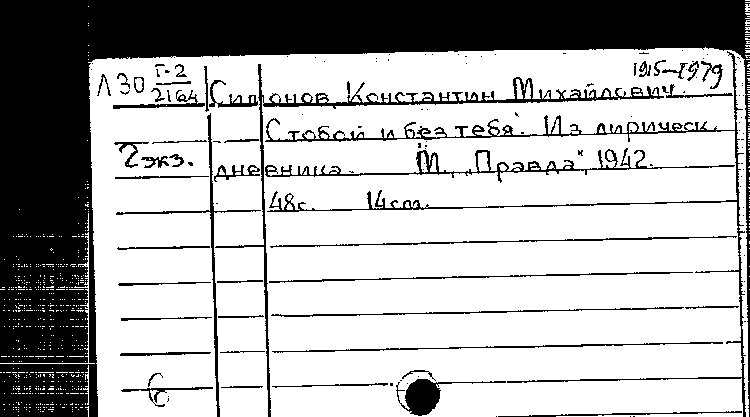 1915-1979
Л30 Г-2/2164 Симонов, Константин Михайлович.
С тобой и без тебя. Из лирическ.
2 экз. дневника. М., „Правда", 1942.
48с. 14см.